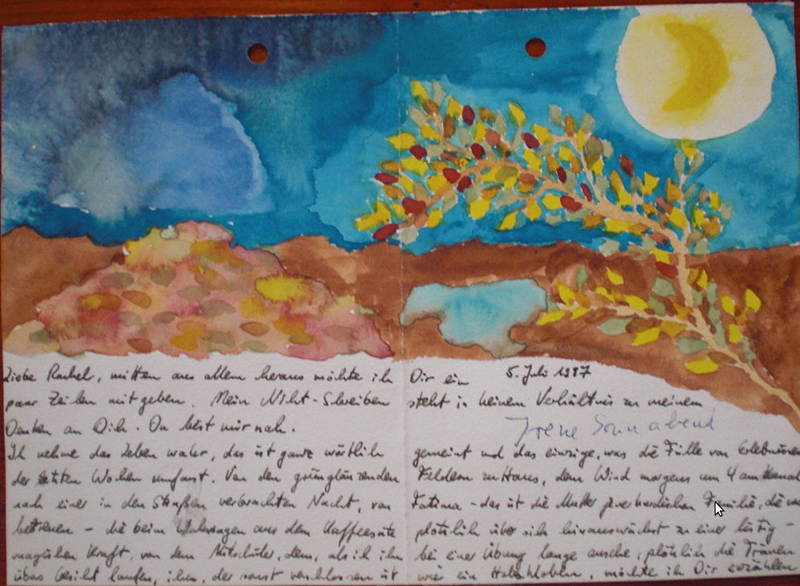 Liebe Rachel, mitten aus allem heraus möchte ich Dir ein 5. Juli 1997
paar Zeilen mitgeben. Mein Nicht-Schreiben steht in keinem Verhältnis zu meinem
Denken an Dich. Du bist mir nah. Irene Sonnabend
Ich nehme das Leben wahr, das ist ganz wörtlich gemeint und das einzige, was die Fülle von Erlebnissen
der letzten Wochen umfasst. Von den grünglänzenden Feldern zu Haus, dem Wind morgens um 4 am Kanal
nach einer in den Straßen verbrachten Nacht, von Fatima - das ist die Mutter jener kurdischen Familie, die wir
betreuen - die beim Wahrsagen aus dem Kaffeesatz plötzlich über sich hinauswächst zu einer lustig-
magischen Kraft, von dem Mitschüler, dem, als ich ihn bei einer Übung lange ansehe, plötzlich die Tränen
übers Gesicht laufen, ihm, der sonst verschlossen ist wie ein, möchte ich Dir erzählen